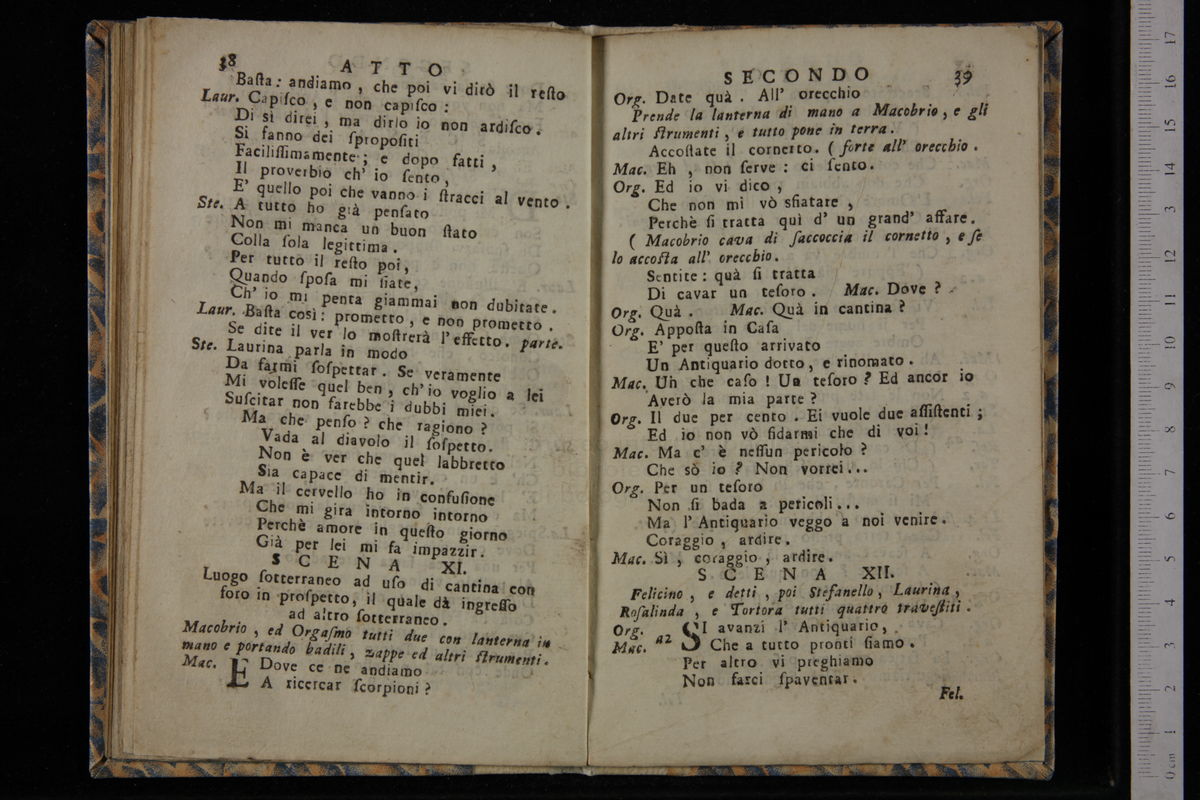 38 ATTO
Baſta: andiamo, che poi vi dirò il reſto
Laur. Capiſco, e non capiſco:
Di sì direi, ma dirlo io non ardiſco.
Si fanno dei ſpropoſiti
Faciliſſimamente; e dopo fatti,
Il proverbio ch' io ſento,
E' quello poi che vanno i ſtracci al vento.
Ste. A tutto ho già penſato
Non mi manca un buon ſtato
Colla ſola legittima.
Per tutto il reſto poi,
Quando ſpoſa mi ſiate,
Ch' io mi penta giammai non dubitate.
Laur. Baſta così: prometto, e non prometto.
Se dite il ver lo moſtrerà l'effetto. parte.
Ste. Laurina parla in modo
Da farmi ſoſpettar. Se veramente
Mi voleſſe quel ben, ch'io voglio a lei
Suſcitar non farebbe i dubbi miei.
Ma che penſo? che ragiono?
Vada al diavolo il ſoſpetto.
Non è ver che quel labbretto
Sia capace di mentir.
Ma il cervello ho in confuſione
Che mi gira intorno intorno
Perchè amore in queſto giorno
Già per lei mi fa impazzir.
SCENA XI.
Luogo ſotterraneo ad uſo di cantina con
foro in proſpetto, il quale dà ingreſſo
ad altro ſotterraneo.
Macobrio, ed Orgaſmo tutti due con lanterna in
mano e portando badili, zappe ed altri ſtrumenti.
Mac. E Dove ce ne andiamo
A ricercar ſcorpioni?
SECONDO 39
Org. Date quà. All' orecchio
Prende la lanterna di mano a Macobrio, e gli
altri ſtrumenti, e tutto pone in terra.
Accoſtate il cornetto. (forte all' orecchio.
Mac. Eh, non ſerve: ci ſento.
Org. Ed io vi dico,
Che non mi vò sfiatare,
Perchè ſi tratta quì d' un grand' affare.
(Macobrio cava di ſaccoccia il cornetto, e ſe
lo accoſta all' orecchio.
Sentite: quà ſi tratta
Di cavar un teſoro. Mac. Dove?
Org. Quà. Mac. Quà in cantina?
Org. Appoſta in Caſa
E' per queſto arrivato
Un Antiquario dotto, e rinomato.
Mac. Uh che caſo! Un teſoro? Ed ancor io
Averò la mia parte?
Org. Il due per cento. Ei vuole due aſſiſtenti;
Ed io non vò fidarmi che di voi!
Mac. Ma c' è neſſun pericolo?
Che sò io? Non vorrei...
Org. Per un teſoro
Non ſi bada a pericoli...
Ma l' Antiquario veggo a noi venire.
Coraggio, ardire.
Mac. Sì, coraggio, ardire.
SCENA XII.
Felicino, e detti, poi Stefanello, Laurina,
Roſalinda, e Tortora tutti quattro traveſtiti.
Org. Mac. a2 SI avanzi l' Antiquario,
Che a tutto pronti ſiamo.
Per altro vi preghiamo
Non farci ſpaventar.
Fel.
0 cm 1 2 3 4 5 6 7 8 9 10 11 12 13 14 15 16 17